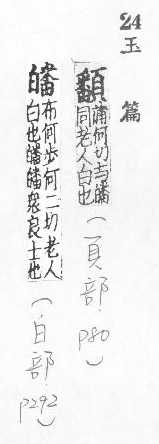 24
玉篇
蒲何切与皤
同老人白也
(頁部 p80)
皤
布何步何二切老人
白也皤皤衆良士也
(白部 p292)